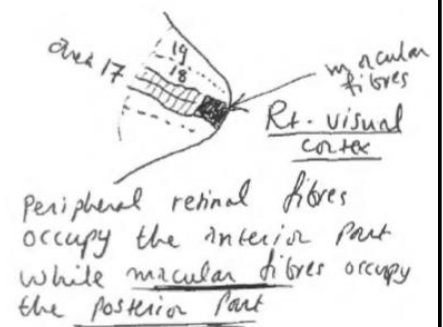 area 17
19
18
macular
fibres
Rt. visual
cortex
Peripheral retinal fibres
occupy the anterior part
while macular fibres occupy
the posterior part